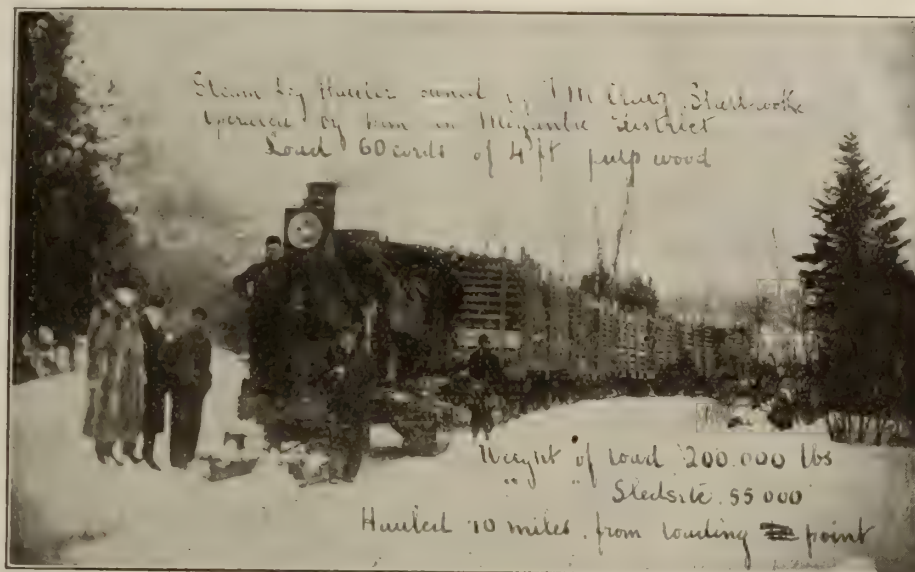 Steam Log Hauler owned by Sherbrooke
Operated by him in Megantic District
Load 60 cords of 4 ft pulp wood
Weight of load 200.000 lbs
" " Sleds etc. 55 000
Hauled 10 miles. from loading point